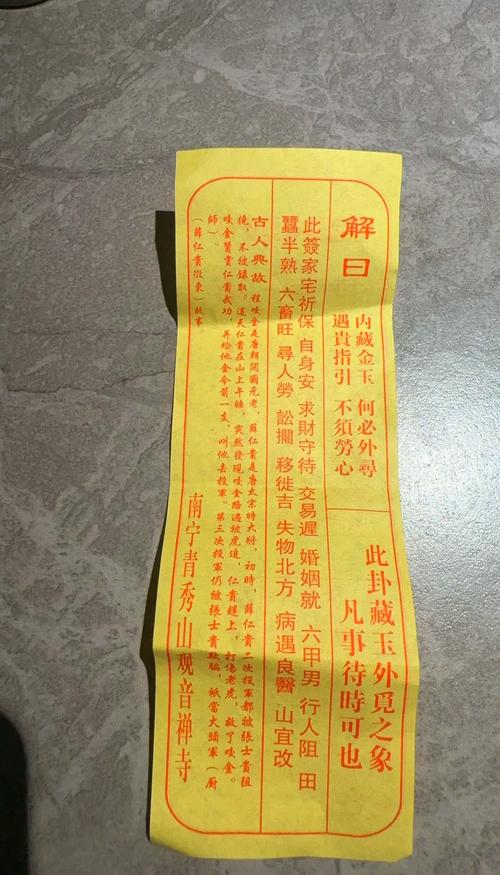 解曰
内藏金玉 何必外尋
遇貴指引 不須勞心
此卦藏玉外覓之象
凡事待時可也
此簽家宅祈保 自身安 求財守待 交易遲 婚姻就 六甲男 行人阻 田
蠶半熟 六畜旺 尋人勞 訟擱 移徙吉 失物北方 病遇良醫 山宜改
古人典故 程咬金是唐朝開國元老，薛仁貴是唐太宗時大將，初時，薛仁貴二次投軍都被張士貴阻
撓，不被錄取。這天仁貴在山上午睡，突然發現咬金路過被虎追，仁貴趕上，打傷老虎，救了咬金。
咬金贊賞仁貴武功，并給他金令箭一支，叫他去投軍。第三次投軍仍被張士貴欺騙，祇當火頭軍（厨
師）。
（薛仁貴徵東）故事
南宁青秀山观音禅寺